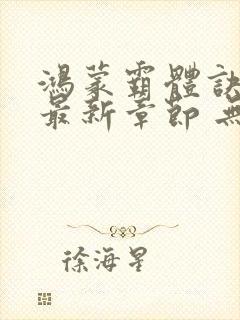 鴻蒙霸體訣
最新章節 無
徐海星